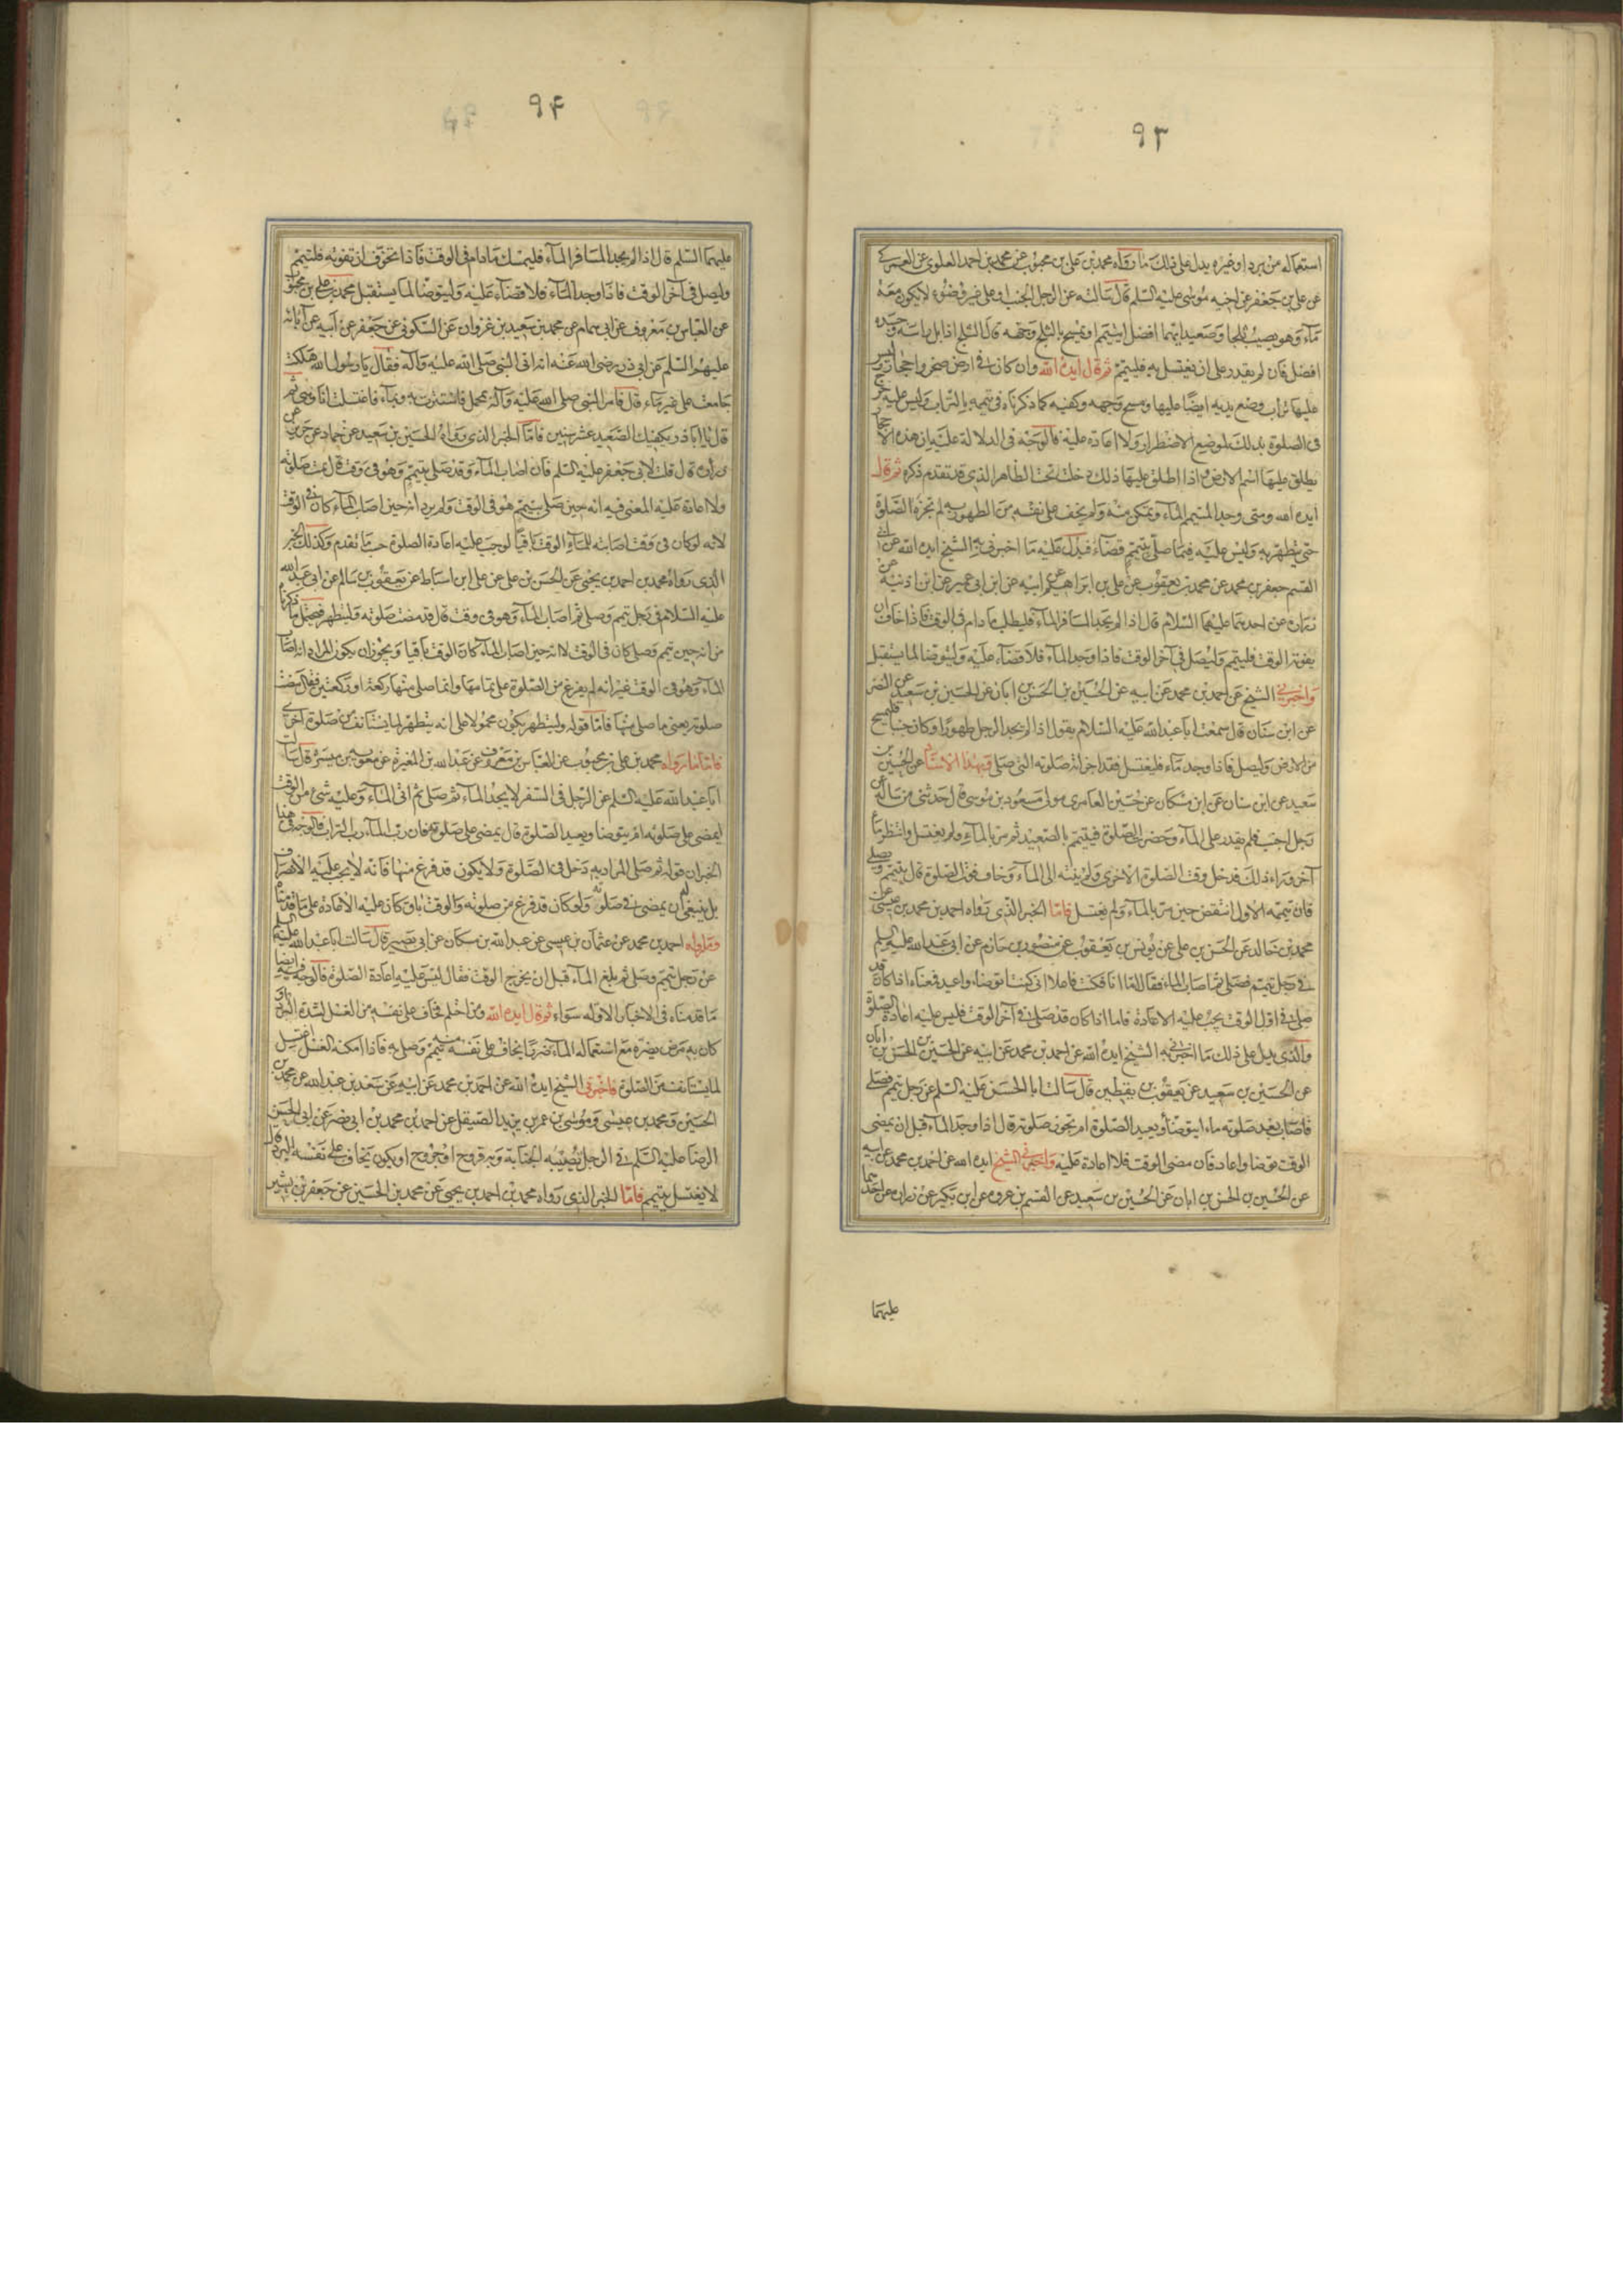 ٩٣
استعماله من برد او غيره يدل على ذلك ما رواه محمد بن على بن محبوب عن محمد بن احمد العلوى عن العمركى
عن على بن جعفر عن اخيه موسى عليه السلم قال سالته عن الرجل الجنب او على غير وضوء لا يكون معه
ماء وهو يصيب ثلجا وصعيدا ايهما افضل ايتيمم او يمسح بالثلج وجهه قال الثلج اذا بل راسه وجسده
افضل فان لم يقدر على ان يغتسل به فليتيمم ثم قال ايده الله وان كان فى ارض صخر واحجار ليس
عليها تراب وضع يديه ايضا عليها ومسح وجهه وكفيه كما ذكرناه فى تيممه بالتراب وليس عليه حرج
فى الصلوة بذلك لموضع الاضطرار ولا اعادة عليه فالوجه فى الدلالة عليه ان هذه الاحجار
يطلق عليها اسم الارض واذا اطلق عليها ذلك دخلت تحت الظاهر الذى قد تقدم ذكره ثم قال
ايده الله ومتى وجد المتيمم الماء وتمكن منه ولم يخف على نفسه من الطهور به لم تجزه الصلوة
حتى يتطهر به وليس عليه فيما صلى بتيمم قضاء فيدل عليه ما اخبرنى به الشيخ ايده الله عن ابى
القسم جعفر بن محمد عن محمد بن يعقوب عن على بن ابراهيم عن ابيه عن ابن ابى عمير عن ابن اذينة عن
زرارة عن احدهما عليهما السلام قال اذا لم يجد المسافر الماء فليطلب ما دام فى الوقت فاذا خاف ان
يفوته الوقت فليتيمم وليصل فى آخر الوقت فاذا وجد الماء فلا قضاء عليه وليتوضا لما يستقبل
واخبرنى الشيخ عن احمد بن محمد عن ابيه عن الحسين بن الحسن بن ابان عن الحسين بن سعيد عن النضر
عن ابن سنان قال سمعت ابا عبد الله عليه السلام يقول اذا لم يجد الرجل طهورا وكان جنبا فليمسح
من الارض وليصل فاذا وجد ماء فليغتسل فقد اجزاته صلوته التى صلى وبهذا الاسناد عن الحسين بن
سعيد عن ابن سنان عن ابن مسكان عن حسين العامرى مولى مسعود بن موسى قال حدثنى من ساله عن
رجل اجنب فلم يقدر على الماء وحضرت الصلوة فيتيمم بالصعيد ثم مر بالماء ولم يغتسل وانتظر ماء
آخر وراء ذلك فدخل وقت الصلوة الاخرى ولم ينته الى الماء وخاف فوت الصلوة قال يتيمم ويصلى
فان تيممه الاول انتقض حين مر بالماء ولم يغتسل فاما الخبر الذى رواه احمد بن محمد بن عيسى عن
محمد بن خالد عن الحسن بن على عن يونس بن يعقوب عن منصور بن حازم عن ابى عبد الله عليه السلم
فى رجل تيمم فصلى ثم اصاب الماء فقال اما انا فكنت فاعلا انى كنت اتوضاء واعيد فمعناه اذا كان قد
صلى فى اول الوقت يجب عليه الاعادة فاما اذا كان قد صلى فى آخر الوقت فليس عليه اعادة الصلوة
والذى يدل على ذلك ما اخبرنى به الشيخ ايده الله عن احمد بن محمد عن ابيه عن الحسين بن الحسن بن ابان
عن الحسين بن سعيد عن يعقوب بن يقطين قال سالت ابا الحسن عليه السلم عن رجل تيمم فصلى
فاصاب بعد صلوته ماء ايتوضأ ويعيد الصلوة ام تجوز صلوته قال اذا وجد الماء قبل ان يمضى
الوقت توضا واعاد فان مضى الوقت فلا اعادة عليه واخبرنى الشيخ ايده الله عن احمد بن محمد عن ابيه
عن الحسين بن الحسن بن ابان عن الحسين بن سعيد عن القسم بن عروة عن ابن بكير عن زرارة عن احدهما
عليهما
٩۴
عليهما السلم قال اذا لم يجد المسافر الماء فليمسك ما دام فى الوقت فاذا تخوف ان تفوته فليتيمم
وليصل فى آخر الوقت فاذا وجد الماء فلا قضاء عليه وليتوضا لما يستقبل محمد بن على بن محبوب
عن العباس بن معروف عن ابى همام عن محمد بن سعيد بن غزوان عن السكونى عن جعفر عن ابيه عن آبائه
عليهم السلم عن ابى ذر رضى الله عنه انه اتى النبى صلى الله عليه وآله فقال يا رسول الله هلكت
جامعت على غير ماء قال فامر النبى صلى الله عليه وآله بمحمل فاستترت به وبماء فاغتسلت انا وهى ثم
قال يا ابا ذر يكفيك الصعيد عشر سنين فاما الخبر الذى رواه الحسين بن سعيد عن حماد عن حريز عن
زرارة قال قلت لابى جعفر عليه السلم فان اصاب الماء وقد صلى بتيمم وهو فى وقت قال تمت صلوته
ولا اعادة عليه المعنى فيه انه حين صلى بتيمم هو فى الوقت ولم يرد انه حين اصاب الماء كان فى الوقت
لانه لو كان فى وقت اصابته للماء الوقت باقيا لوجب عليه اعادة الصلوة حسب ما تقدم وكذلك الخبر
الذى رواه محمد بن احمد بن يحيى عن الحسن بن على عن على ابن اسباط عن يعقوب بن سالم عن ابى عبد الله
عليه السلام فى رجل تيمم وصلى ثم اصاب الماء وهو فى وقت قال قد مضت صلوته وليتطهر فيحتمل ما ذكرنا
من انه حين تيمم وصلى كان فى الوقت لا انه حين اصاب الماء كان الوقت باقيا ويجوز ان يكون المراد انه اصاب
الماء وهو فى الوقت غير انه لم يفرغ من الصلوة على تمامها وانما صلى منها ركعة او ركعتين فقال مضت
صلوته يعنى ما صلى منها فاما قوله وليتطهر يكون محمولا على انه يتطهر لما يستانف من صلوة اخرى
فاما ما رواه محمد بن على بن محبوب عن العباس بن معروف عن عبد الله بن المغيرة عن معوية بن ميسرة قال سالت
ابا عبد الله عليه السلم عن الرجل فى السفر لا يجد الماء ثم صلى ثم اتى الماء وعليه شئ من الوقت
ايمضى على صلوته ام يتوضا ويعيد الصلوة قال يمضى على صلوته فان رب الماء رب التراب فالوجه فى هذا
الخبر ان قوله ثم صلى المراد به دخل فى الصلوة ولا يكون قد فرغ منها فانه لا يجب عليه الانصراف
بل ينبغى له ان يمضى فى صلوته ولو كان قد فرغ من صلوته والوقت باق كان عليه الاعادة على ما قدمناه
وما رواه احمد بن محمد عن عثمان بن عيسى عن عبد الله بن مسكان عن ابى بصير قال سالت ابا عبد الله عليه السلم
عن رجل تيمم وصلى ثم بلغ الماء قبل ان يخرج الوقت فقال ليس عليه اعادة الصلوة فالوجه فيه ايضا
ما قدمناه فى الاخبار الاولة سواء ثم قال ايده الله ومن احتلم فخاف على نفسه من الغسل لشدة البرد او
كان به مرض يضره مع استعماله الماء ضررا يخاف على نفسه منه تيمم وصلى به فاذا امكنه الغسل اغتسل
لما يستانف من الصلوة فاخبرنى الشيخ ايده الله عن احمد بن محمد عن ابيه عن سعد بن عبد الله عن محمد بن
الحسين ومحمد بن عيسى وموسى بن عمر بن يزيد الصيقل عن احمد بن محمد بن ابى نصر عن ابى الحسن
الرضا عليه السلم فى الرجل تصيبه الجنابة وبه قروح او جروح او يكون يخاف على نفسه البرد قال
لا يغتسل يتيمم فاما الخبر الذى رواه محمد بن احمد بن يحيى عن محمد بن الحسين عن جعفر بن بشير